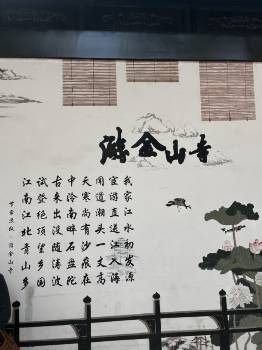 游金山寺
我家江水初发源
宦游直送江入海
闻道潮头一丈高
天寒尚有沙痕在
中泠南畔石盘陀
古来出没随涛波
试登绝顶望乡国
江南江北青山多
节录苏轼·游金山寺